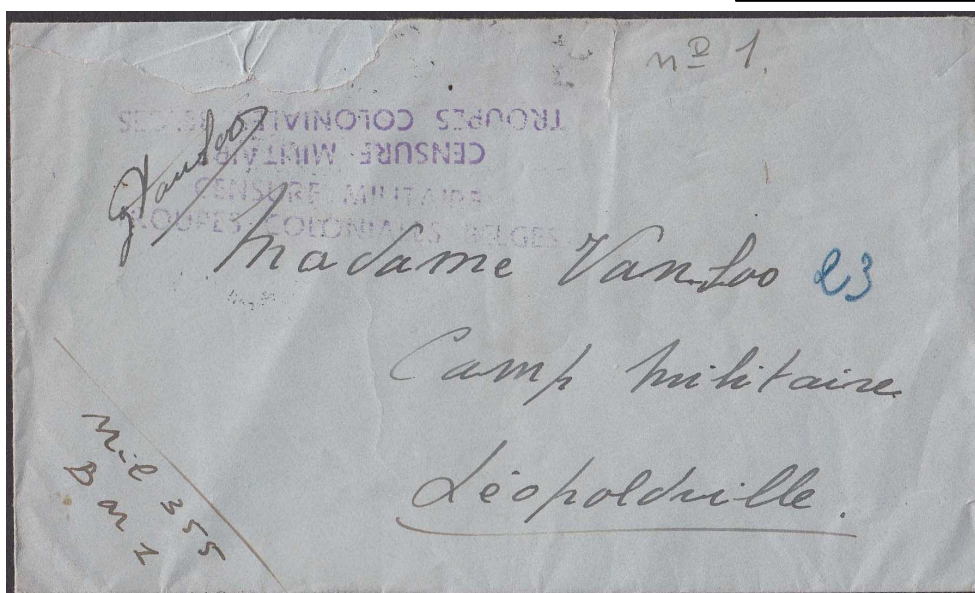 nº 1.
TROUPES COLONIALES BELGES
CENSURE MILITAIRE
CENSURE MILITAIRE
TROUPES COLONIALES BELGES
VanLoo
Madame Van Loo 23
Camp Militaire
Léopoldville.
Mil 355